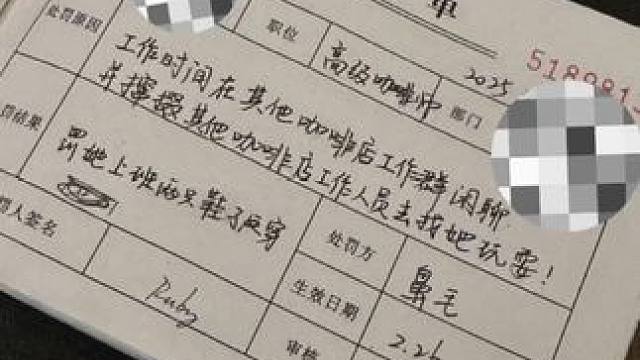 单
2025
5189813
职位
高级咖啡师
部门
处罚原因
工作时间在其他咖啡店工作群闲聊
并撺掇其他咖啡店工作人员去找她玩耍!
罚结果
罚她上班两只鞋子反穿
罚人签名
Ruby
处罚方
鼻毛
生效日期
2.26
审核